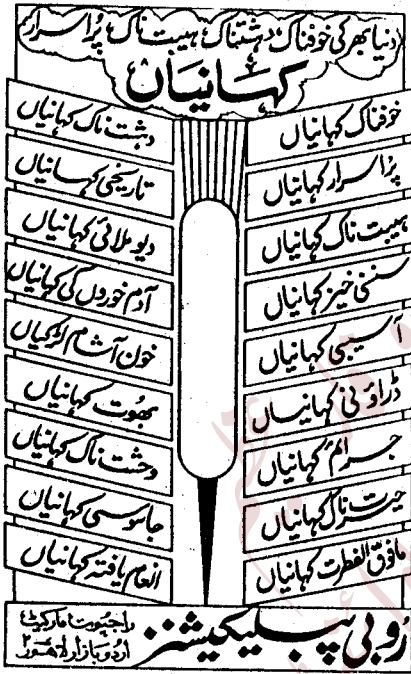 دنیا بھر کی خوفناک، دہشتناک، ہیبت ناک، پُراسرار
کہانیاں
خوفناک کہانیاں
پُراسرار کہانیاں
ہیبت ناک کہانیاں
سنسنی خیز کہانیاں
آسیبی کہانیاں
ڈراؤنی کہانیاں
جرائم کہانیاں
حیرت ناک کہانیاں
مافوق الفطرت کہانیاں
دہشت ناک کہانیاں
تاریخی کہانیاں
دیومالائی کہانیاں
آدم خوروں کی کہانیاں
خون آشام لڑکیاں
بھوت کہانیاں
وحشت ناک کہانیاں
جاسوسی کہانیاں
انعام یافتہ کہانیاں
روبی پبلیکیشنز
راجپوت مارکیٹ
اردو بازار لاہور